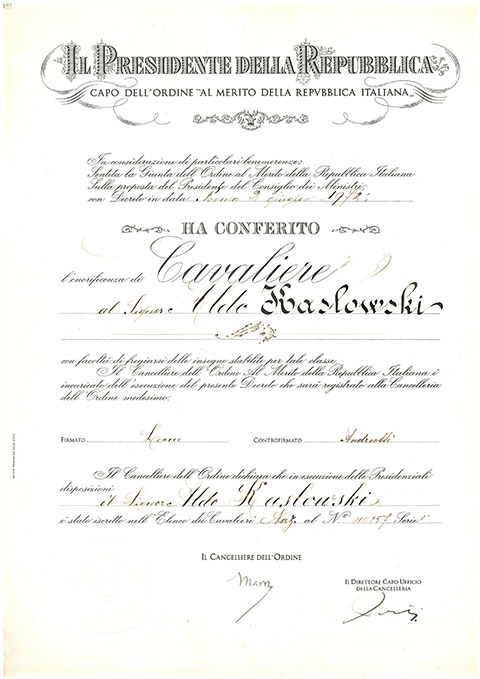 IL PRESIDENTE DELLA REPUBBLICA
CAPO DELL'ORDINE "AL MERITO DELLA REPVBBLICA ITALIANA"
In considerazione di particolari benemerenze;
Sentita la Giunta dell'Ordine al Merito della Repubblica Italiana
Sulla proposta del Presidente del Consiglio dei Ministri;
con Decreto in data Roma 2 giugno 1972;
HA CONFERITO
l'onorificenza di Cavaliere
al Signor Aldo Kaslowski
con facoltà di fregiarsi delle insegne stabilite per tale classe.
Il Cancelliere dell'Ordine Al Merito della Repubblica Italiana è
incaricato dell'esecuzione del presente Decreto che sarà registrato alla Cancelleria
dell'Ordine medesimo.
FIRMATO Leone CONTROFIRMATO Andreotti
Il Cancelliere dell'Ordine dichiara che in esecuzione delle Presidenziali
disposizioni
il Signor Aldo Kaslowski
è stato iscritto nell'Elenco dei Cavalieri al N° Serie
IL CANCELLIERE DELL'ORDINE
IL DIRETTORE CAPO UFFICIO
DELLA CANCELLERIA